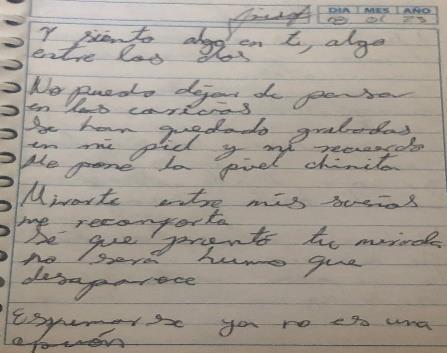 DIA MES AÑO
Y siento algo en ti, algo
entre los dos
No puedo dejar de pensar
en las caricias
Se han quedado grabadas
en mi piel y mi recuerdo
Me pone la piel chinita
Mirarte entre mis sueños
me reconforta
Sé que pronto tu mirada
no será humo que
desaparece
Esfumarse ya no es una
opción